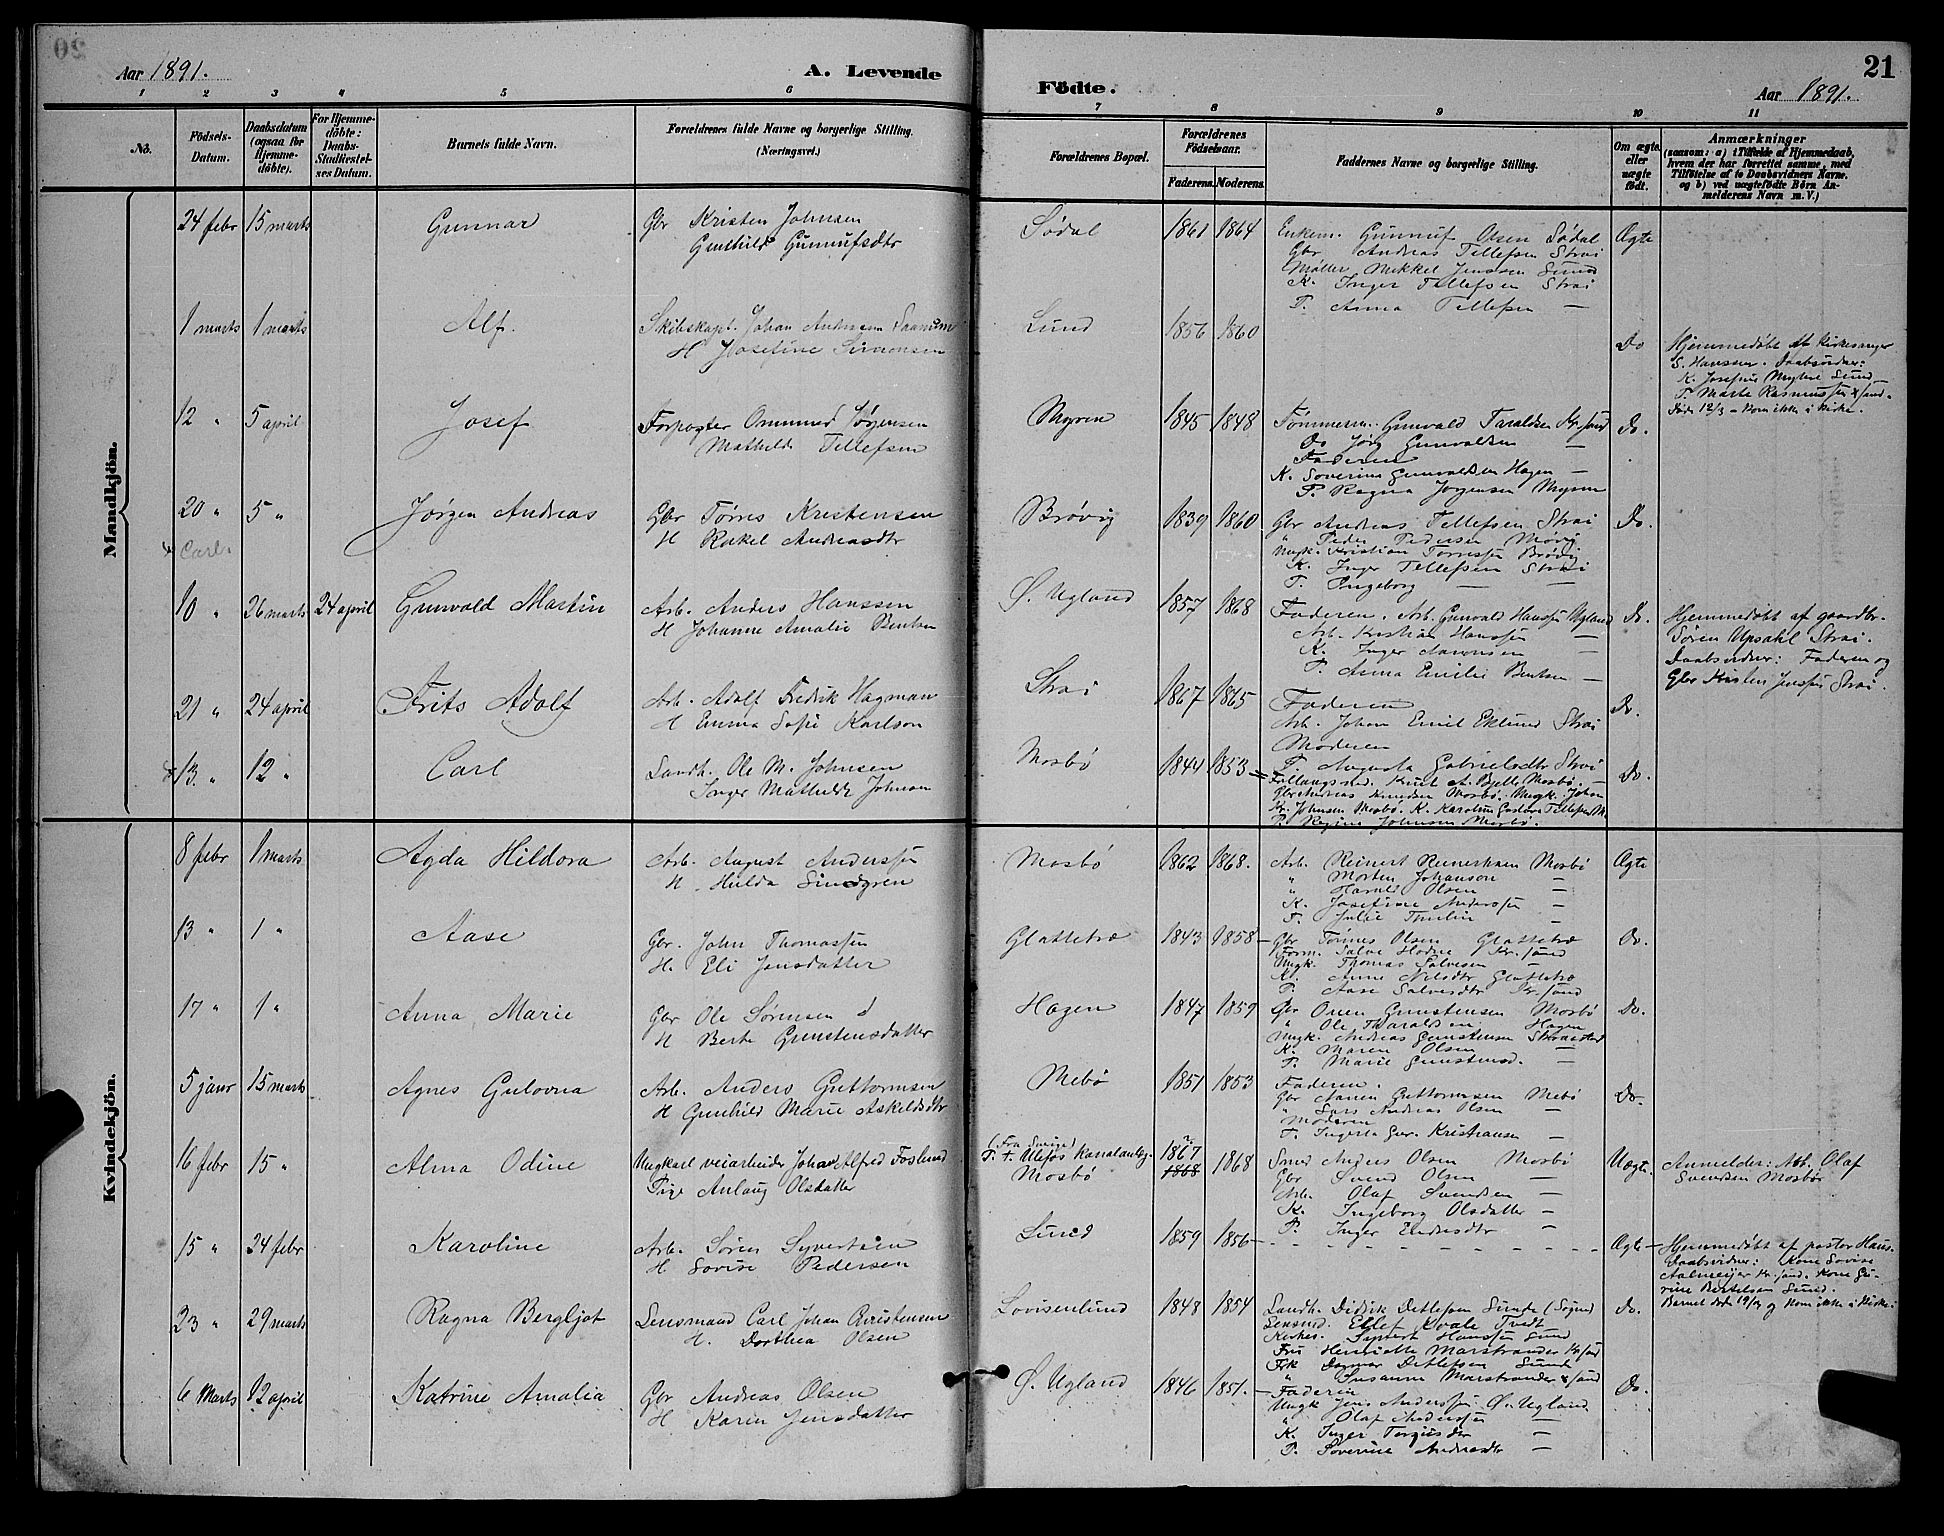 20
Aar 1891.
A. Levende
Födte.
21
Aar 1891.
1 2 3 4 5 6 7 8 9 10 11
No.
Födsels-Datum.
Daabsdatum (ogsaa for Hjemmedöbte).
For Hjemmedöbte: Daabs-Stadfæstelses Datum.
Barnets fulde Navn.
Forældrenes fulde Navne og borgerlige Stilling. (Næringsvei.)
Forældrenes Bopæl.
Forældrenes Födselsaar.
Faderens. Moderens.
Faddernes Navne og borgerlige Stilling.
Om ægte eller uægte födt.
Anmærkninger
(saasom: a) i Tilfælde af Hjemmedaab, hvem der har forrettet samme, med Tilföielse af to Daabsvidners Navne, og b) ved uægtefödte Börn Anmelderens Navn m.V.)
Mandkjön.
24 febr 15 marts Gunnar Gbr Kristen Johnsen
Gunhild Gunnufsdtr
Södal 1861 1864
Enkem. Gunnuf Olsen Södal Ægte
Gbr Andreas Tellefsen Strai
Møller Mikkel Jenssen Lund
K. Inger Tellefsen Strai
P. Anna Tellefsen —
1 marts 1 marts Alf. Skibskapt. Johan Andreas Saanum
H Josefine Simonsen
Lund 1856 1860 Do
Hjemmedøbt af Kirkesanger
S. Hanssen. Daabsvidner:
K. Josefine Myhre Lund
P. Marte Rasmussen Krsand.
Døde 12/3 – kom ikke i Kirke.
12 " 5 april Josef Forpagter Ommund Jörgensen
Mathilde Tellefsen
Myren 1845 1848
Tømmerm. Gunvald Taraldsen Kr.sand Do.
Do Jörg Gunvaldsen —
Faderen
K. Soverine Gunvaldsen Hagen —
P. Ragna Jorgensen Myren
20 " 5 " Jörgen Andreas Gbr Tørres Kristensen
H Rakel Andreasdtr
Brövig 1839 1860
Gbr Andreas Tellefsen Strai Do.
" Peder Pedersen Møvig
Ungk. Kristian Torressen Brövig
K. Inger Tellefsen Strai
P. Ingeborg — —
Carl.
10 " 26 marts 24 april Gunvald Martin Arb. Anders Hanssen
H Johanne Amalie Bentsen
Ø. Ugland 1857 1868
Faderen. Arb. Gunvald Hanssen Ugland Do.
Arb. Kristian Hanssen —
K. Inger Aanonsen —
P. Anna Emilie Bentsen —
Hjemmedøbt af gaardbr.
Sören Upsahl Strai.
Daabsvidner: Faderen og
Gbr Kristen Jenssen Strai.
21 " 24 april Frits Adolf Arb. Adolf Fredrik Hagman
H Emma Sofi Karlson
Strai 1867 1865
Faderen Do.
Arb. Johan Emil Eklund Strai
Moderen
P. Augusta Gabrielsdtr Strai
13. " 12 " Carl Landh. Ole M. Johnsen
Inger Mathilde Johnsen
Mosbö 1844 1853
Knut A. Bjelle Mosbö. Do.
Gbr Andreas Knudsen Mosbö. Ungk. Johan
Kr. Johnsen Mosbö. K. Karoline Gustava Tellefsen M.
P. Regine Johnsen Mosbö.
Kvindekjön.
8 febr 1 marts Agda Hildora Arb. August Anderssen
H. Hulda Lindgren
Mosbö 1862 1868.
Arb. Reinert Reinertsen Mosbö Ægte
" Morten Johanson —
" Harald Olsen —
K. Josefine Anderssen —
P. Julie Thulin —
13 " 1 " Aase Gbr. John Thomassen
H. Eli Jensdatter
Glattetræ 1843 1858
Gbr Tønnes Olsen Glattetræ Do.
Salve Hodne Kr.sand
Ungk. Thomas Salvesen
K. Anne Nilsdtr Glattetræ
P. Aase Salvesdtr Kr.sand
17 " 1 " Anna Marie Gbr Ole Sörensen
H Berte Gunstensdatter
Hagen 1847 1859
Gbr Onen Gunstensen Mosbö Do.
" Ole Tharaldsen Hagen
Ungk. Andreas Gunstensen
K. Maren Olsen —
P. Marie Gunstensd. —
5 janr 15 marts Agnes Gulovna Arb. Anders Guttormsen
H Gunhild Marie Askeldsdtr
Mebö 1851 1853
Faderen. Do.
Gbr Aanen Guttormsen Mebö
" Lars Andreas Olsen —
Moderen
P. Ingerta Gur. Kristiansen —
16 febr 15 " Alma Odine Ungkarl veiarbeider Johan Alfred Foslund
Pige Anlaug Olsdatter
(Fra Sverige)
P. t. Ulefos Kanalanlæg.
Mosbö 1867 1868 1868
Smed Anders Olsen Mosbö Uægte
Gbr Svend Olsen —
Arb. Olaf Svendsen —
K. Ingeborg Olsdatter —
P. Inger Endresdtr —
Anmelder: Arb. Olaf
Svendsen Mosbö
15 " 24 febr Karoline Arb. Sören Syvertsen
H. Lovise Pedersen
Lund 1859 1856 Ægte
Hjemmedøbt af pastor Hans.
Daabsvidner: Kone Lovise
Aalmeijer Kr.sand. Kone Gurine Bertelsen Lund.
Barnet døde 19/4 og kom ikke i Kirke.
23 " 29 marts Ragna Bergljot Lensmand Carl Johan Christensen
H. Dorthea Olsen
Lovisenlund 1848 1854
Landh. Didrik Detlefsen Lunde (Søgne) Do.
Lensmd. Ellef Kvale Tvedt
Kirkes. Syvert Hanssen Lund
Fru Henriette Marstrander Kr.sand
Frk Dagmar Detlefsen Lunde
" Susanne Marstrander Krsand
6 Marts 12 april Katrine Amalia Gbr Andreas Olsen
H Karen Jensdatter
Ø. Ugland 1846 1851.
Faderen Do.
Ungk Jens Anderssen Ø. Ugland
" Olaf Anderssen —
K. Inger Torgusdtr —
P. Soverine Andreasdtr —